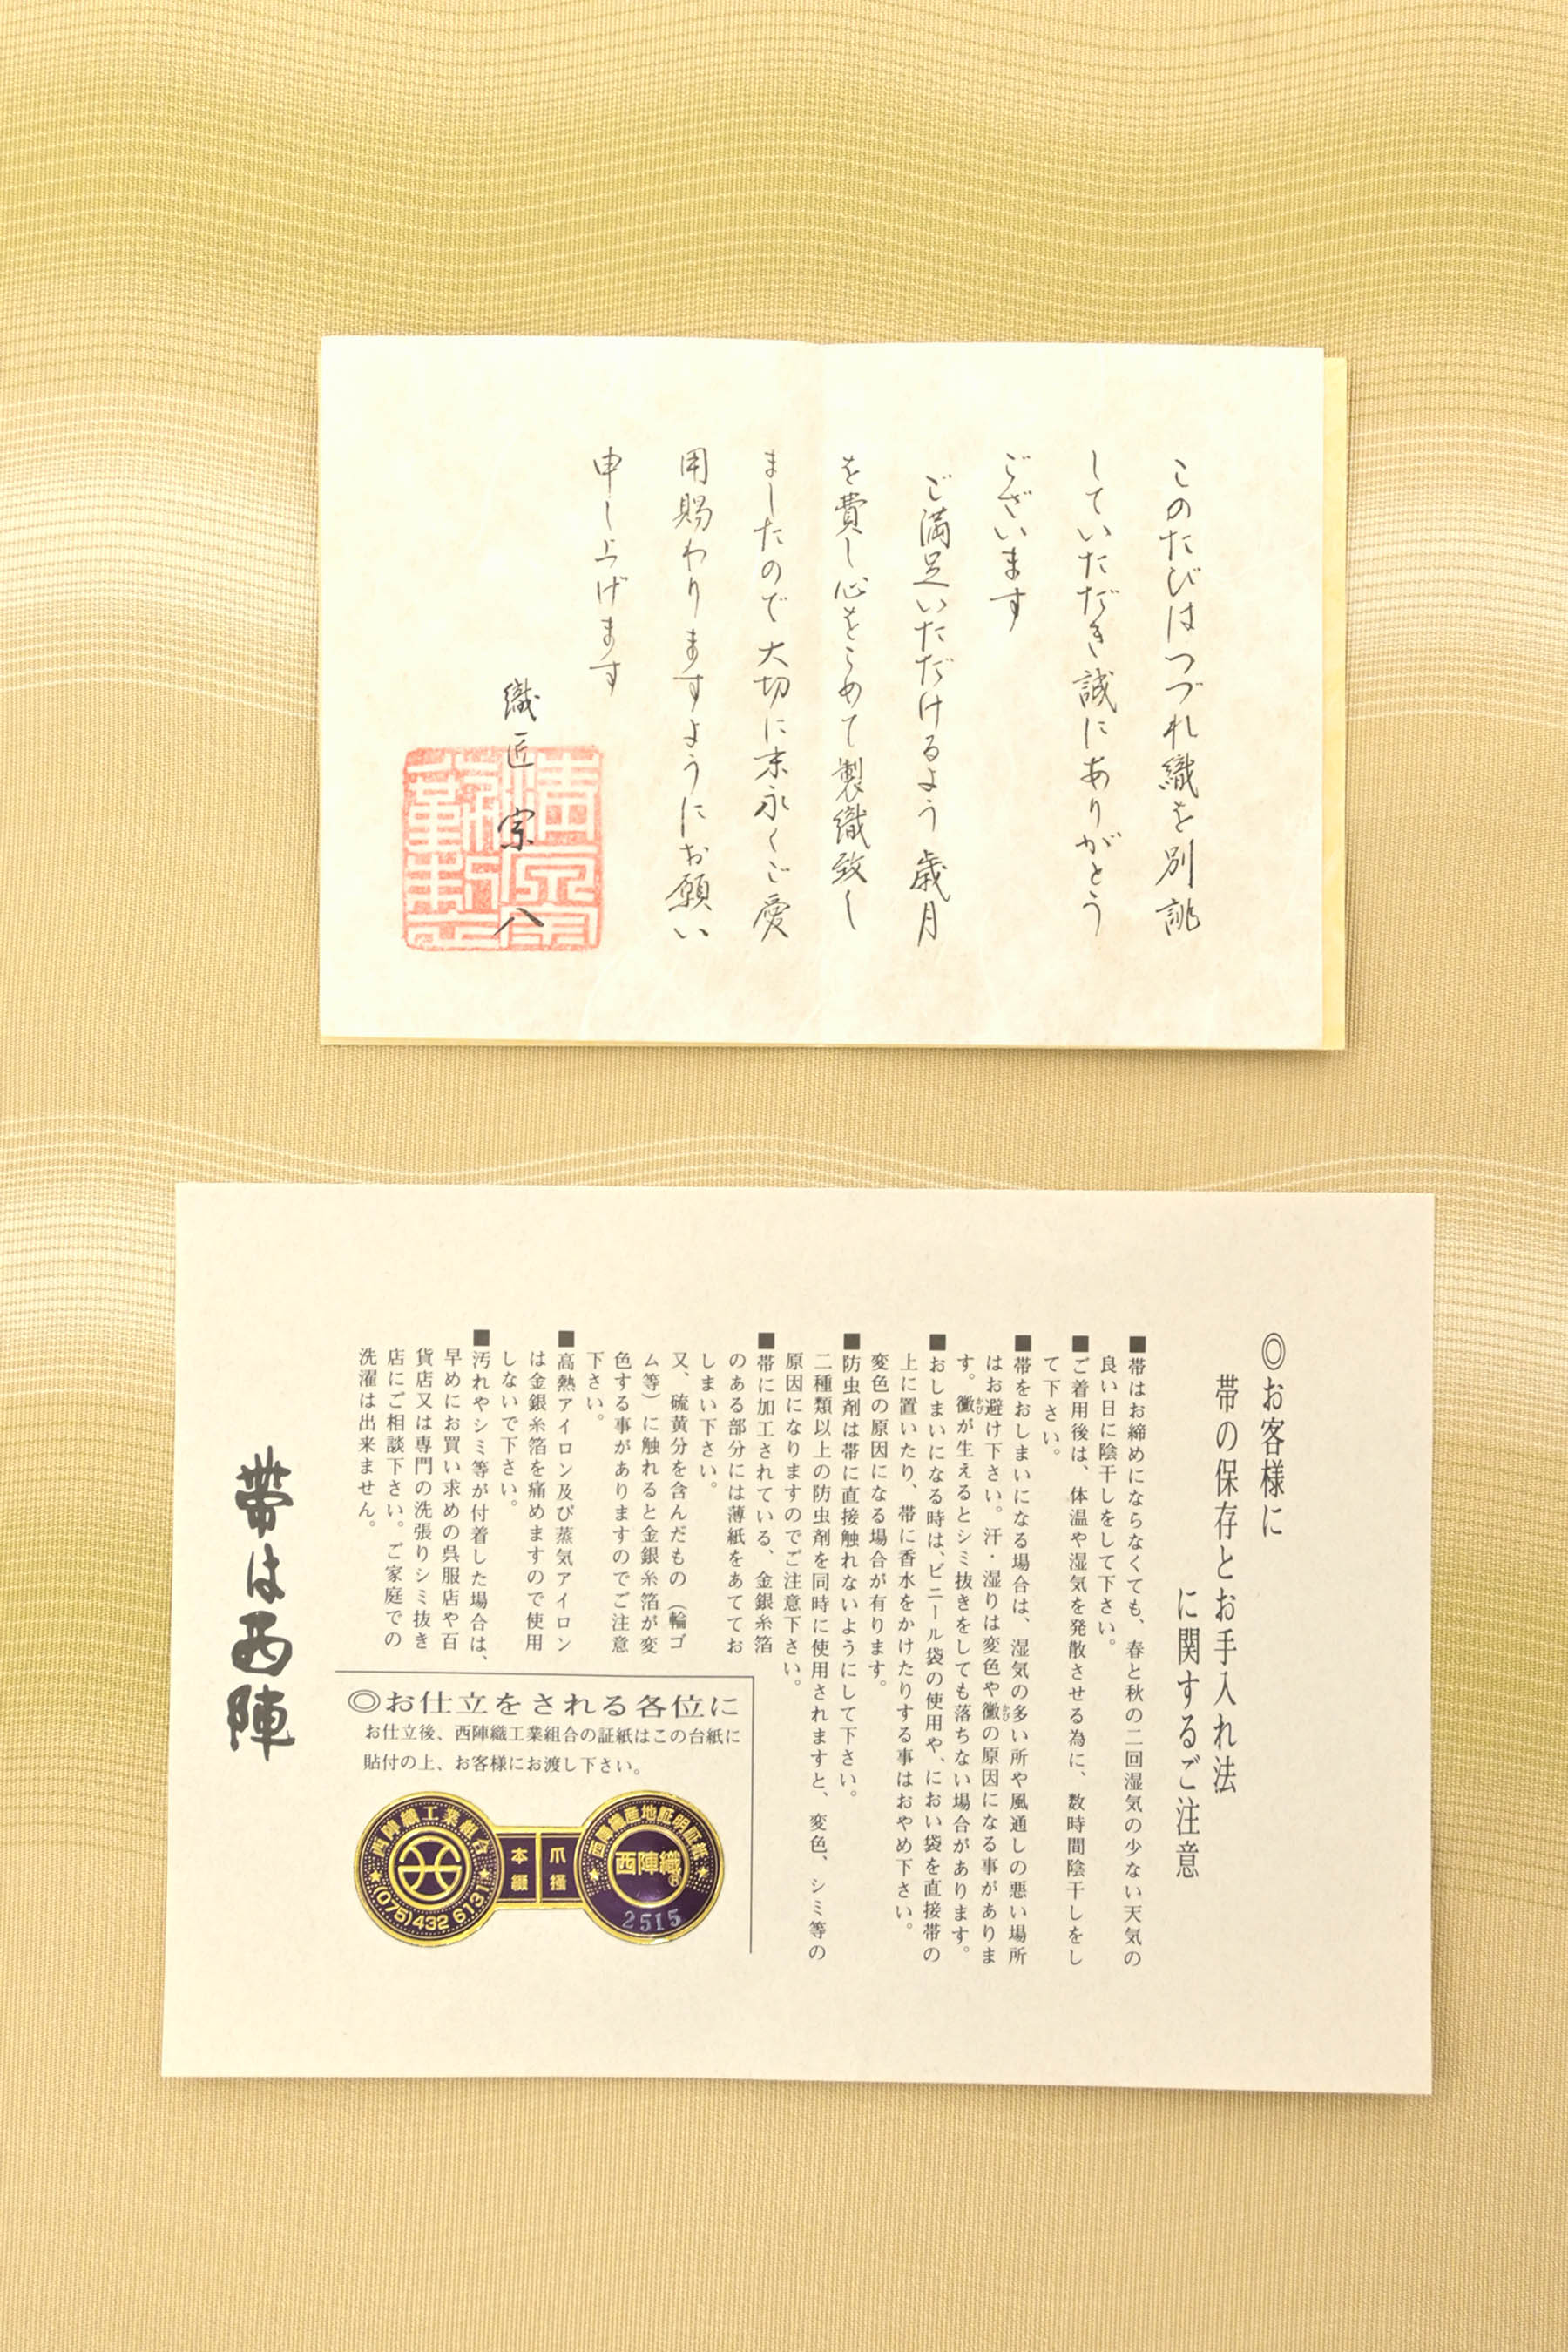 このたびはつづれ織を別誂
していただき誠にありがとう
ございます
ご満足いただけるよう歳月
を費し心をこめて製織致し
ましたので大切に末永くご愛
用賜わりますようにお願い
申し上げます
織匠 宗八
◎お客様に
帯の保存とお手入れ法
に関するご注意
■帯はお締めにならなくても、春と秋の二回湿気の少ない天気の
良い日に陰干しをして下さい。
■ご着用後は、体温や湿気を発散させる為に、数時間陰干しをし
て下さい。
■帯をおしまいになる場合は、湿気の多い所や風通しの悪い場所
はお避け下さい。汗・湿りは変色や黴の原因になる事がありま
す。黴が生えるとシミ抜きをしても落ちない場合があります。
■おしまいになる時は、ビニール袋の使用や、におい袋を直接帯の
上に置いたり、帯に香水をかけたりする事はおやめ下さい。
変色の原因になる場合が有ります。
■防虫剤は帯に直接触れないようにして下さい。
二種類以上の防虫剤を同時に使用されますと、変色、シミ等の
原因になりますのでご注意下さい。
■帯に加工されている、金銀糸箔
のある部分には薄紙をあててお
しまい下さい。
又、硫黄分を含んだもの（輪ゴ
ム等）に触れると金銀糸箔が変
色する事がありますのでご注意
下さい。
■高熱アイロン及び蒸気アイロン
は金銀糸箔を痛めますので使用
しないで下さい。
■汚れやシミ等が付着した場合は、
早めにお買い求めの呉服店や百
貨店又は専門の洗張りシミ抜き
店にご相談下さい。ご家庭での
洗濯は出来ません。
◎お仕立をされる各位に
お仕立後、西陣織工業組合の証紙はこの台紙に
貼付の上、お客様にお渡し下さい。
西陣織工業組合
(075)432 6131
爪掻
本綴
西陣織産地証明証紙
西陣織®
2515
帯は西陣